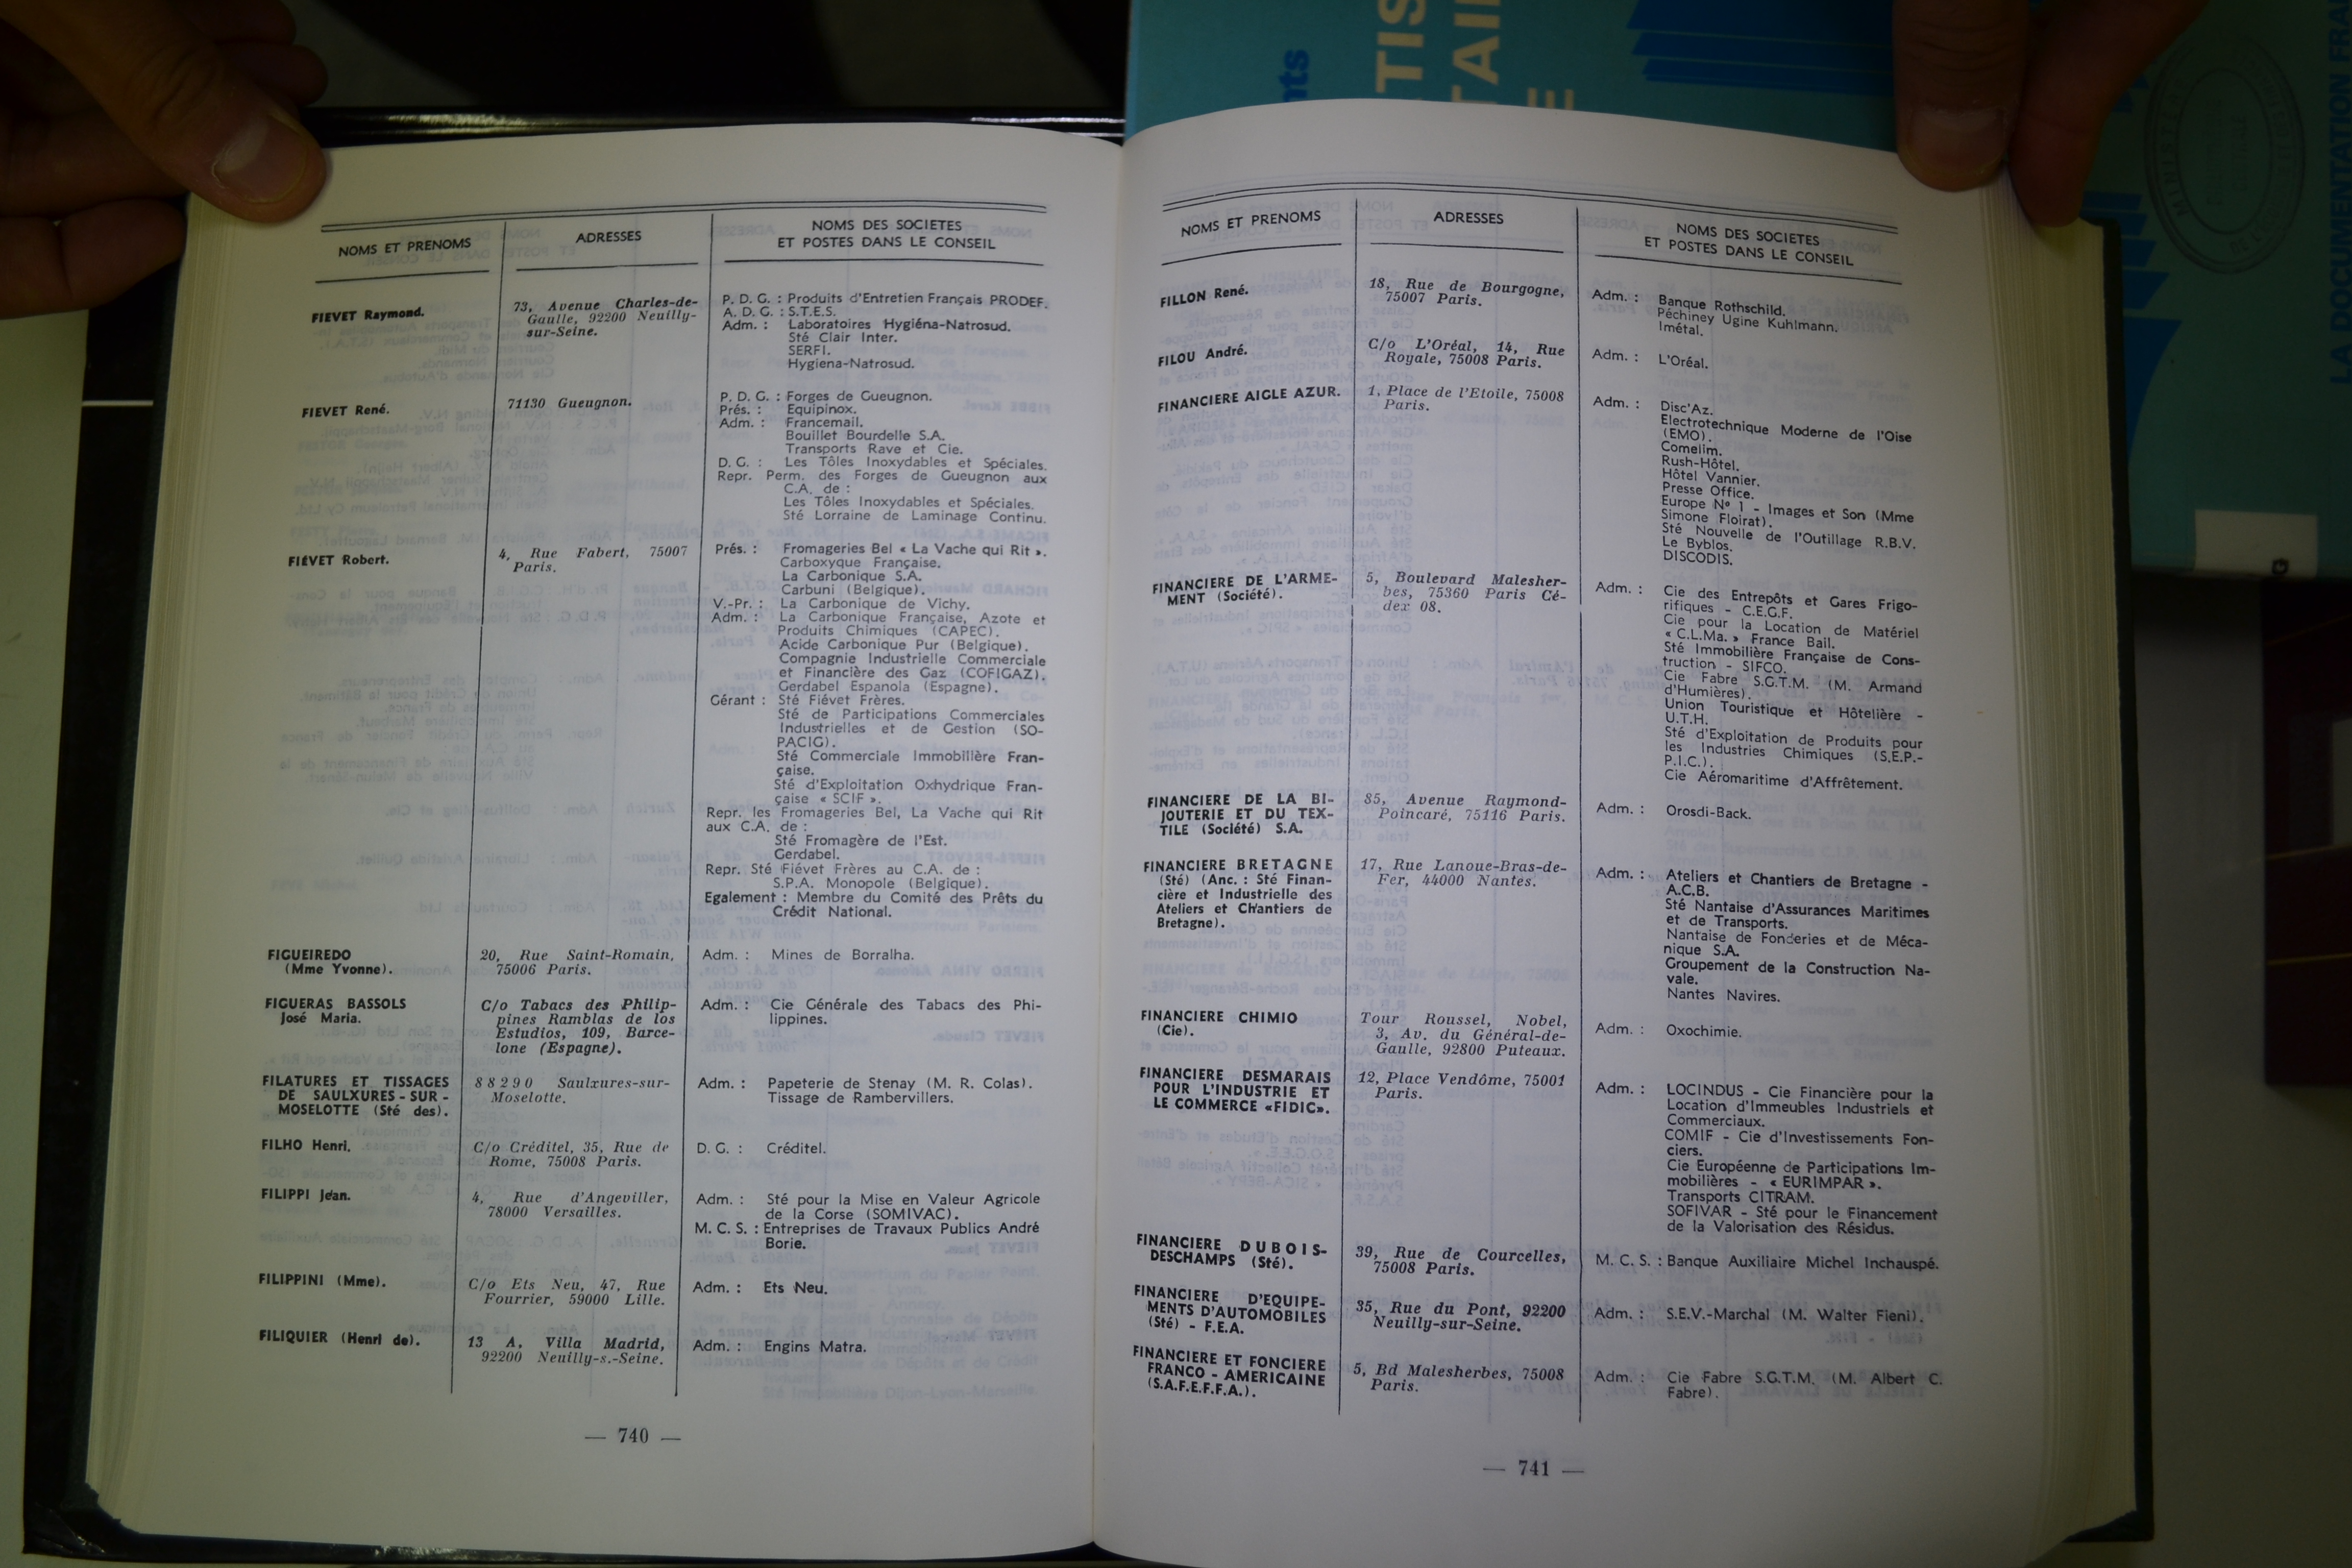 NOMS ET PRENOMS
ADRESSES
NOMS DES SOCIETES
ET POSTES DANS LE CONSEIL
FIEVET Raymond.
73, Avenue Charles-de-
Gaulle, 92200 Neuilly-
sur-Seine.
P. D. G. : Produits d'Entretien Français PRODEF.
A. D. G. : S.T.E.S.
Adm. : Laboratoires Hygiéna-Natrosud.
Sté Clair Inter.
SERFI.
Hygiena-Natrosud.
FIEVET René.
71130 Gueugnon.
P. D. G. : Forges de Gueugnon.
Prés. : Equipinox.
Adm. : Francemail.
Bouillet Bourdelle S.A.
Transports Rave et Cie.
D. G. : Les Tôles Inoxydables et Spéciales.
Repr. Perm. des Forges de Gueugnon aux
C.A. de :
Les Tôles Inoxydables et Spéciales.
Sté Lorraine de Laminage Continu.
FIÉVET Robert.
4, Rue Fabert, 75007
Paris.
Prés. : Fromageries Bel « La Vache qui Rit ».
Carboxyque Française.
La Carbonique S.A.
Carbuni (Belgique).
V.-Pr. : La Carbonique de Vichy.
Adm. : La Carbonique Française, Azote et
Produits Chimiques (CAPEC).
Acide Carbonique Pur (Belgique).
Compagnie Industrielle Commerciale
et Financière des Gaz (COFIGAZ).
Gerdabel Espanola (Espagne).
Gérant : Sté Fiévet Frères.
Sté de Participations Commerciales
Industrielles et de Gestion (SO-
PACIG).
Sté Commerciale Immobilière Fran-
çaise.
Sté d'Exploitation Oxhydrique Fran-
çaise « SCIF ».
Repr. les Fromageries Bel, La Vache qui Rit
aux C.A. de :
Sté Fromagère de l'Est.
Gerdabel.
Repr. Sté Fiévet Frères au C.A. de :
S.P.A. Monopole (Belgique).
Egalement : Membre du Comité des Prêts du
Crédit National.
FIGUEIREDO
(Mme Yvonne).
20, Rue Saint-Romain,
75006 Paris.
Adm. : Mines de Borralha.
FIGUERAS BASSOLS
José Maria.
C/o Tabacs des Philip-
pines Ramblas de los
Estudios, 109, Barce-
lone (Espagne).
Adm. : Cie Générale des Tabacs des Phi-
lippines.
FILATURES ET TISSAGES
DE SAULXURES-SUR-
MOSELOTTE (Sté des).
88290 Saulxures-sur-
Moselotte.
Adm. : Papeterie de Stenay (M. R. Colas).
Tissage de Rambervillers.
FILHO Henri.
C/o Créditel, 35, Rue de
Rome, 75008 Paris.
D. G. : Créditel.
FILIPPI Jean.
4, Rue d'Angeviller,
78000 Versailles.
Adm. : Sté pour la Mise en Valeur Agricole
de la Corse (SOMIVAC).
M. C. S. : Entreprises de Travaux Publics André
Borie.
FILIPPINI (Mme).
C/o Ets Neu, 47, Rue
Fourrier, 59000 Lille.
Adm. : Ets Neu.
FILIQUIER (Henri de).
13 A, Villa Madrid,
92200 Neuilly-s.-Seine.
Adm. : Engins Matra.
— 740 —
NOMS ET PRENOMS
ADRESSES
NOMS DES SOCIETES
ET POSTES DANS LE CONSEIL
FILLON René.
18, Rue de Bourgogne,
75007 Paris.
Adm. : Banque Rothschild.
Péchiney Ugine Kuhlmann.
Imétal.
FILOU André.
C/o L'Oréal, 14, Rue
Royale, 75008 Paris.
Adm. : L'Oréal.
FINANCIERE AIGLE AZUR.
1, Place de l'Etoile, 75008
Paris.
Adm. : Disc'Az.
Electrotechnique Moderne de l'Oise
(EMO).
Comelim.
Rush-Hôtel.
Hôtel Vannier.
Presse Office.
Europe N° 1 - Images et Son (Mme
Simone Floirat).
Sté Nouvelle de l'Outillage R.B.V.
Le Byblos.
DISCODIS.
FINANCIERE DE L'ARME-
MENT (Société).
5, Boulevard Malesher-
bes, 75360 Paris Cé-
dex 08.
Adm. : Cie des Entrepôts et Gares Frigo-
rifiques - C.E.G.F.
Cie pour la Location de Matériel
« C.L.Ma. » France Bail.
Sté Immobilière Française de Cons-
truction - SIFCO.
Cie Fabre S.G.T.M. (M. Armand
d'Humières).
Union Touristique et Hôtelière -
U.T.H.
Sté d'Exploitation de Produits pour
les Industries Chimiques (S.E.P.-
P.I.C.).
Cie Aéromaritime d'Affrêtement.
FINANCIERE DE LA BI-
JOUTERIE ET DU TEX-
TILE (Société) S.A.
85, Avenue Raymond-
Poincaré, 75116 Paris.
Adm. : Orosdi-Back.
FINANCIERE BRETAGNE
(Sté) (Anc. : Sté Finan-
cière et Industrielle des
Ateliers et Chantiers de
Bretagne).
17, Rue Lanoue-Bras-de-
Fer, 44000 Nantes.
Adm. : Ateliers et Chantiers de Bretagne -
A.C.B.
Sté Nantaise d'Assurances Maritimes
et de Transports.
Nantaise de Fonderies et de Méca-
nique S.A.
Groupement de la Construction Na-
vale.
Nantes Navires.
FINANCIERE CHIMIO
(Cie).
Tour Roussel, Nobel,
3, Av. du Général-de-
Gaulle, 92800 Puteaux.
Adm. : Oxochimie.
FINANCIERE DESMARAIS
POUR L'INDUSTRIE ET
LE COMMERCE «FIDIC».
12, Place Vendôme, 75001
Paris.
Adm. : LOCINDUS - Cie Financière pour la
Location d'Immeubles Industriels et
Commerciaux.
COMIF - Cie d'Investissements Fon-
ciers.
Cie Européenne de Participations Im-
mobilières - « EURIMPAR ».
Transports CITRAM.
SOFIVAR - Sté pour le Financement
de la Valorisation des Résidus.
FINANCIERE DUBOIS-
DESCHAMPS (Sté).
39, Rue de Courcelles,
75008 Paris.
M. C. S. : Banque Auxiliaire Michel Inchauspé.
FINANCIERE D'EQUIPE-
MENTS D'AUTOMOBILES
(Sté) - F.E.A.
35, Rue du Pont, 92200
Neuilly-sur-Seine.
Adm. : S.E.V.-Marchal (M. Walter Fieni).
FINANCIERE ET FONCIERE
FRANCO-AMERICAINE
(S.A.F.E.F.F.A.).
5, Bd Malesherbes, 75008
Paris.
Adm. : Cie Fabre S.G.T.M. (M. Albert C.
Fabre).
— 741 —
nts
TIS
TAI
E
LA DOCUMENTATION FRA